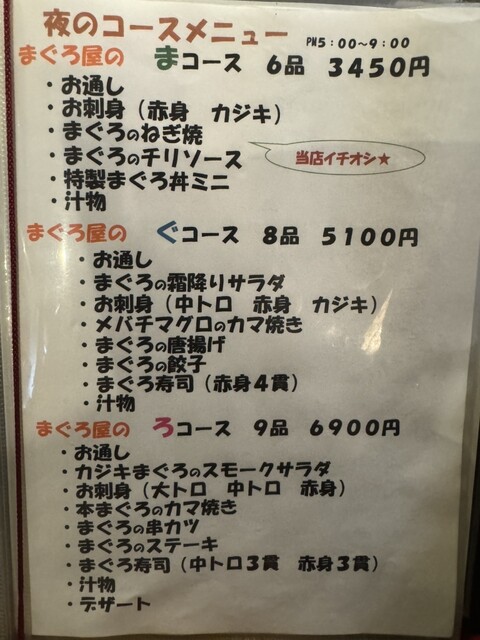 夜のコースメニュー PM5:00～9:00
まぐろ屋の まコース 6品 3450円
・お通し
・お刺身(赤身 カジキ)
・まぐろのねぎ焼
・まぐろのチリソース
当店イチオシ★
・特製まぐろ丼ミニ
・汁物
まぐろ屋の ぐコース 8品 5100円
・お通し
・まぐろの霜降りサラダ
・お刺身(中トロ 赤身 カジキ)
・メバチマグロのカマ焼き
・まぐろの唐揚げ
・まぐろの餃子
・まぐろ寿司(赤身4貫)
・汁物
まぐろ屋の ろコース 9品 6900円
・お通し
・カジキまぐろのスモークサラダ
・お刺身(大トロ 中トロ 赤身)
・本まぐろのカマ焼き
・まぐろの串カツ
・まぐろのステーキ
・まぐろ寿司(中トロ3貫 赤身3貫)
・汁物
・デザート